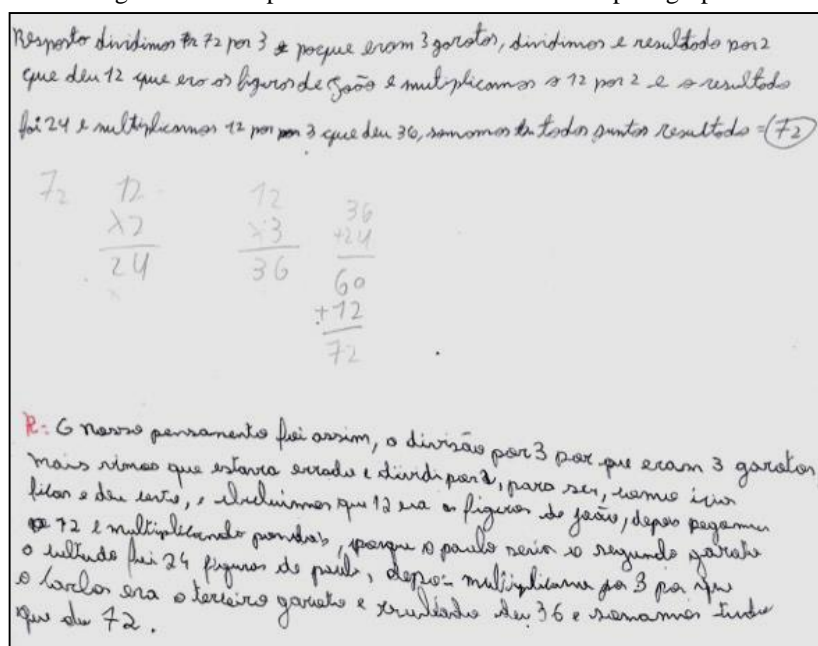 Resposto dividimos 72 por 3 poeque eram 3 garotos, dividimos e resultado por 2
que deu 12 que ero os figuros de João e mutiplicamos o 12 por 2 e o resultado
foi 24 e multiplicamos 12 por 3 que deu 36, somomos todos juntos resultado = 72
72 12 12 36
x2 x3 +24
24 36 60
+12
72
R: O nosso pensamento foi assim, o divisão por 3 por que eram 3 garotos,
mais vimos que estava errado e dividi por 2, para ser, como iria
ficar e deu certo, e que 12 era as figuras de João, depois pegamos
o 12 e multiplicando por dois, porque o paulo seria o segundo garoto
o foi 24 figuras de paulo, depois multiplicamos por 3 por que
o Carlos era o terceiro garoto e deu 36 e somamos tudo
que deu 72.